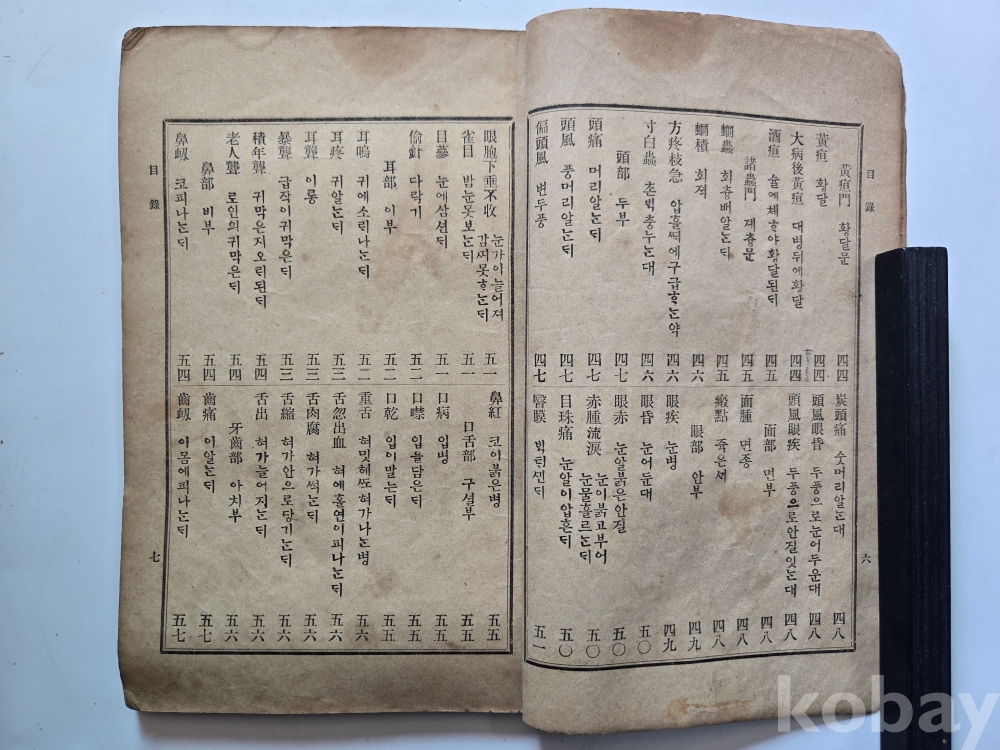 目錄
六
黃疸門 황달문
黃疸 황달 四四
大病後黃疸 대병뒤에황달 四四
酒疸 슐에체ᄒᆞ야황달된ᄃᆡ 四五
諸蟲門 졔츙문
蛔蟲 회츙배알ᄂᆞᆫᄃᆡ 四五
蛔積 회젹 四六
方疼枝急 압흘ᄯᅢ에구급ᄒᆞᄂᆞᆫ약 四六
寸白蟲 촌ᄇᆡᆨ츙누ᄂᆞᆫ대 四六
頭部 두부
頭痛 머리알ᄂᆞᆫᄃᆡ 四七
頭風 풍머리알ᄂᆞᆫᄃᆡ 四七
偏頭風 변두풍 四七
炭頭痛 숫머리알ᄂᆞᆫ대 四八
頭風眼昏 두풍으로눈어두운대 四八
頭風眼疾 두풍으로안질잇ᄂᆞᆫ대 四八
面部 면부
面腫 면종 四八
瘢點 쥭은ᄭᅢ 四八
眼部 안부
眼疾 눈병 四九
眼昏 눈어둔대 五〇
眼赤 눈알붉은안질 五〇
赤腫流淚 눈이붉고부어눈물흘르ᄂᆞᆫᄃᆡ 五〇
目珠痛 눈알이압흔ᄃᆡ 五〇
瞖膜 ᄇᆡᆨᄐᆡ센ᄃᆡ 五一
眼胞下垂不收 눈가이늘어져감찌못ᄒᆞᄂᆞᆫᄃᆡ 五一
雀目 밤눈못보ᄂᆞᆫᄃᆡ 五一
目蔘 눈에삼션ᄃᆡ 五一
偷針 다락기 五二
耳部 이부
耳鳴 귀에소리나ᄂᆞᆫᄃᆡ 五二
耳疼 귀알ᄂᆞᆫᄃᆡ 五三
耳聾 이롱 五三
暴聾 급작이귀막은ᄃᆡ 五三
積年聾 귀막은지오ᄅᆡᆫᄃᆡ 五四
老人聾 로인의귀막은ᄃᆡ 五四
鼻部 비부
鼻衂 코피나ᄂᆞᆫᄃᆡ 五四
鼻紅 코이붉은병 五五
口舌部 구셜부
口病 입병 五五
口噤 입을담은ᄃᆡ 五五
口乾 입이말ᄂᆞᆫᄃᆡ 五五
重舌 혀밋헤ᄯᅩ혀가나ᄂᆞᆫ병 五六
舌忽出血 혀에홀연이피나ᄂᆞᆫᄃᆡ 五六
舌肉腐 혀가썩ᄂᆞᆫᄃᆡ 五六
舌縮 혀가안으로당기ᄂᆞᆫᄃᆡ 五六
舌出 혀가늘어지ᄂᆞᆫᄃᆡ 五六
牙齒部 아치부
齒痛 이알ᄂᆞᆫᄃᆡ 五七
齒衂 이몸에피나ᄂᆞᆫᄃᆡ 五七
目錄
七
kobay